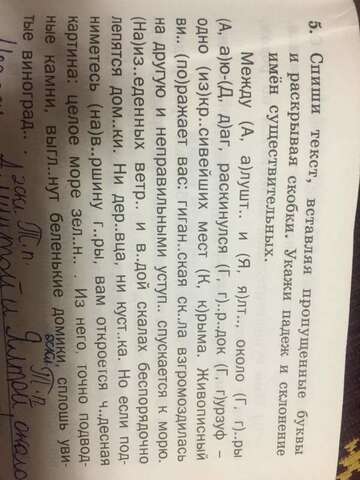 5. Спиши текст, вставляя пропущенные буквы
и раскрывая скобки. Укажи падеж и склонение
имён существительных.
Между (А, а)лушт.. и (Я я)лт.., около (Г, г)..ры
(А, а)ю-(Д, д)аг, раскинулся (Г, г)..р..док (Г, г)урзуф –
одно (из)кр..сивейших мест (К, к)рыма. Живописный
ви.. (по)ражает вас: гиган..ская ск..ла взгромоздилась
на другую и неправильными уступ.. спускается к морю.
(На)из..еденных ветр.. и в..дой скалах беспорядочно
лепятся дом..ки. Ни дер..вца, ни куст..ка. Но если под-
ниметесь (на)в..ршину г..ры, вам откроется ч..десная
картина: целое море зел..н.. . Из него, точно подвод-
ные камни, выгл..нут беленькие домики, сплошь уви-
тые виноград.. .